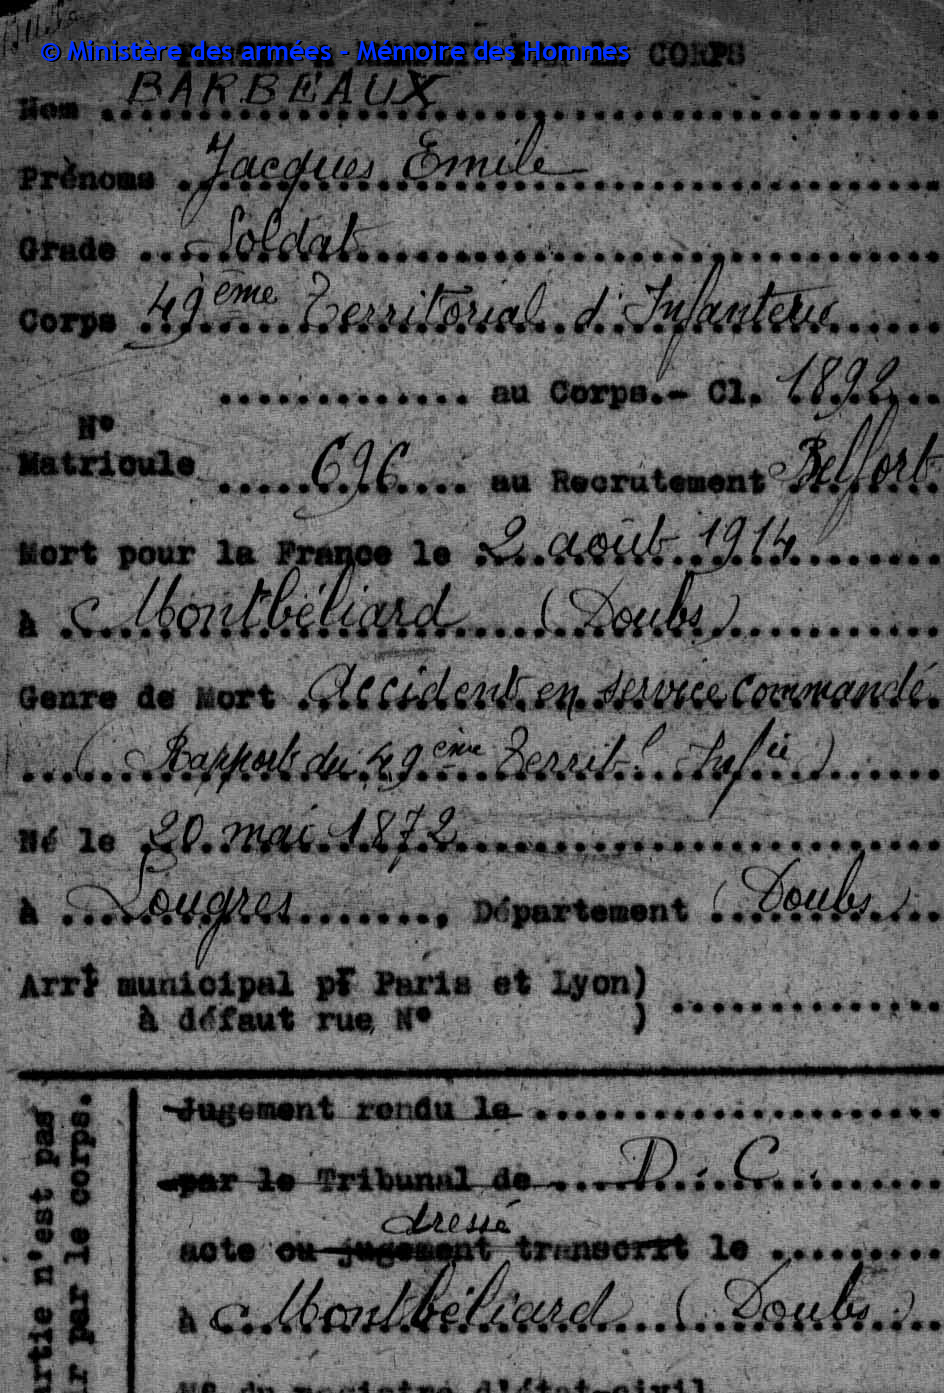 © Ministère des armées - Mémoire des Hommes
CORPS
Nom BARBEAUX
Prénoms Jacques Emile
Grade Soldat
Corps 49ème Territorial d'Infanterie
au Corps.- Cl. 1892
N°
Matricule 696 au Recrutement Belfort
Mort pour la France le 2 août 1914
à Montbéliard (Doubs)
Genre de Mort Accident en service commandé
(Rapport du 49ème Territl Infie)
Né le 20 mai 1872
à Lougres, Département (Doubs)
Arrt municipal pr Paris et Lyon)
à défaut rue N° )
Jugement rendu le
par le Tribunal de D. C.
dressé
acte ou jugement transcrit le
à Montbéliard (Doubs)
N° du registre d'état-civil
artie n'est pas
r par le corps.